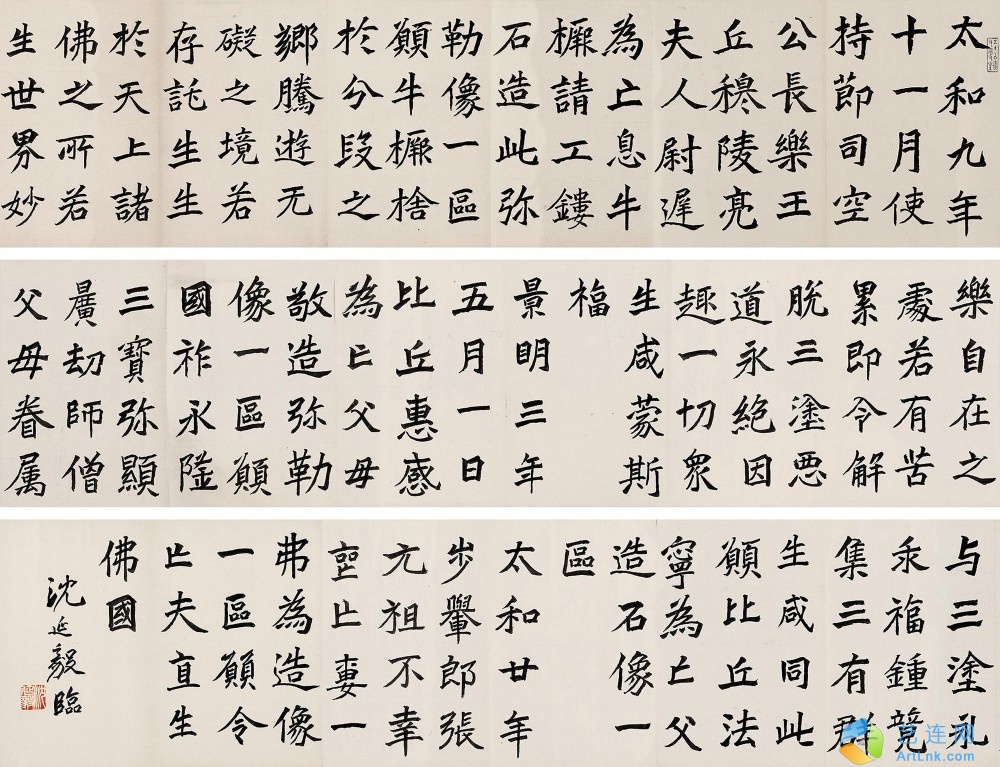 太和九年
十一月使
持節司空
公長樂王
丘穆陵亮
夫人尉遲
為亡息牛
橛請工鏤
石造此弥
勒像一區
願牛橛捨
於分段之
鄉騰遊无
礙之境若
存託生生
於天上諸
佛之所若
生世界妙
樂自在之
處若有苦
累即令解
脫三塗惡
道永絕因
趣一切眾
生咸蒙斯
福
景明三年
五月一日
比丘惠感
為亡父母
敬造弥勒
像一區願
國祚永隆
三寶弥顯
曠劫師僧
父母眷属
与三塗永
乖福鍾竟
集三有群
生咸同此
願比丘法
寧為亡父
造石像一
區
太和廿年
步轝郎張
元祖不幸
喪亡妻一
弗為造像
一區願令
亡夫直生
佛國
沈延毅臨
艺连网
ArtLnk.com